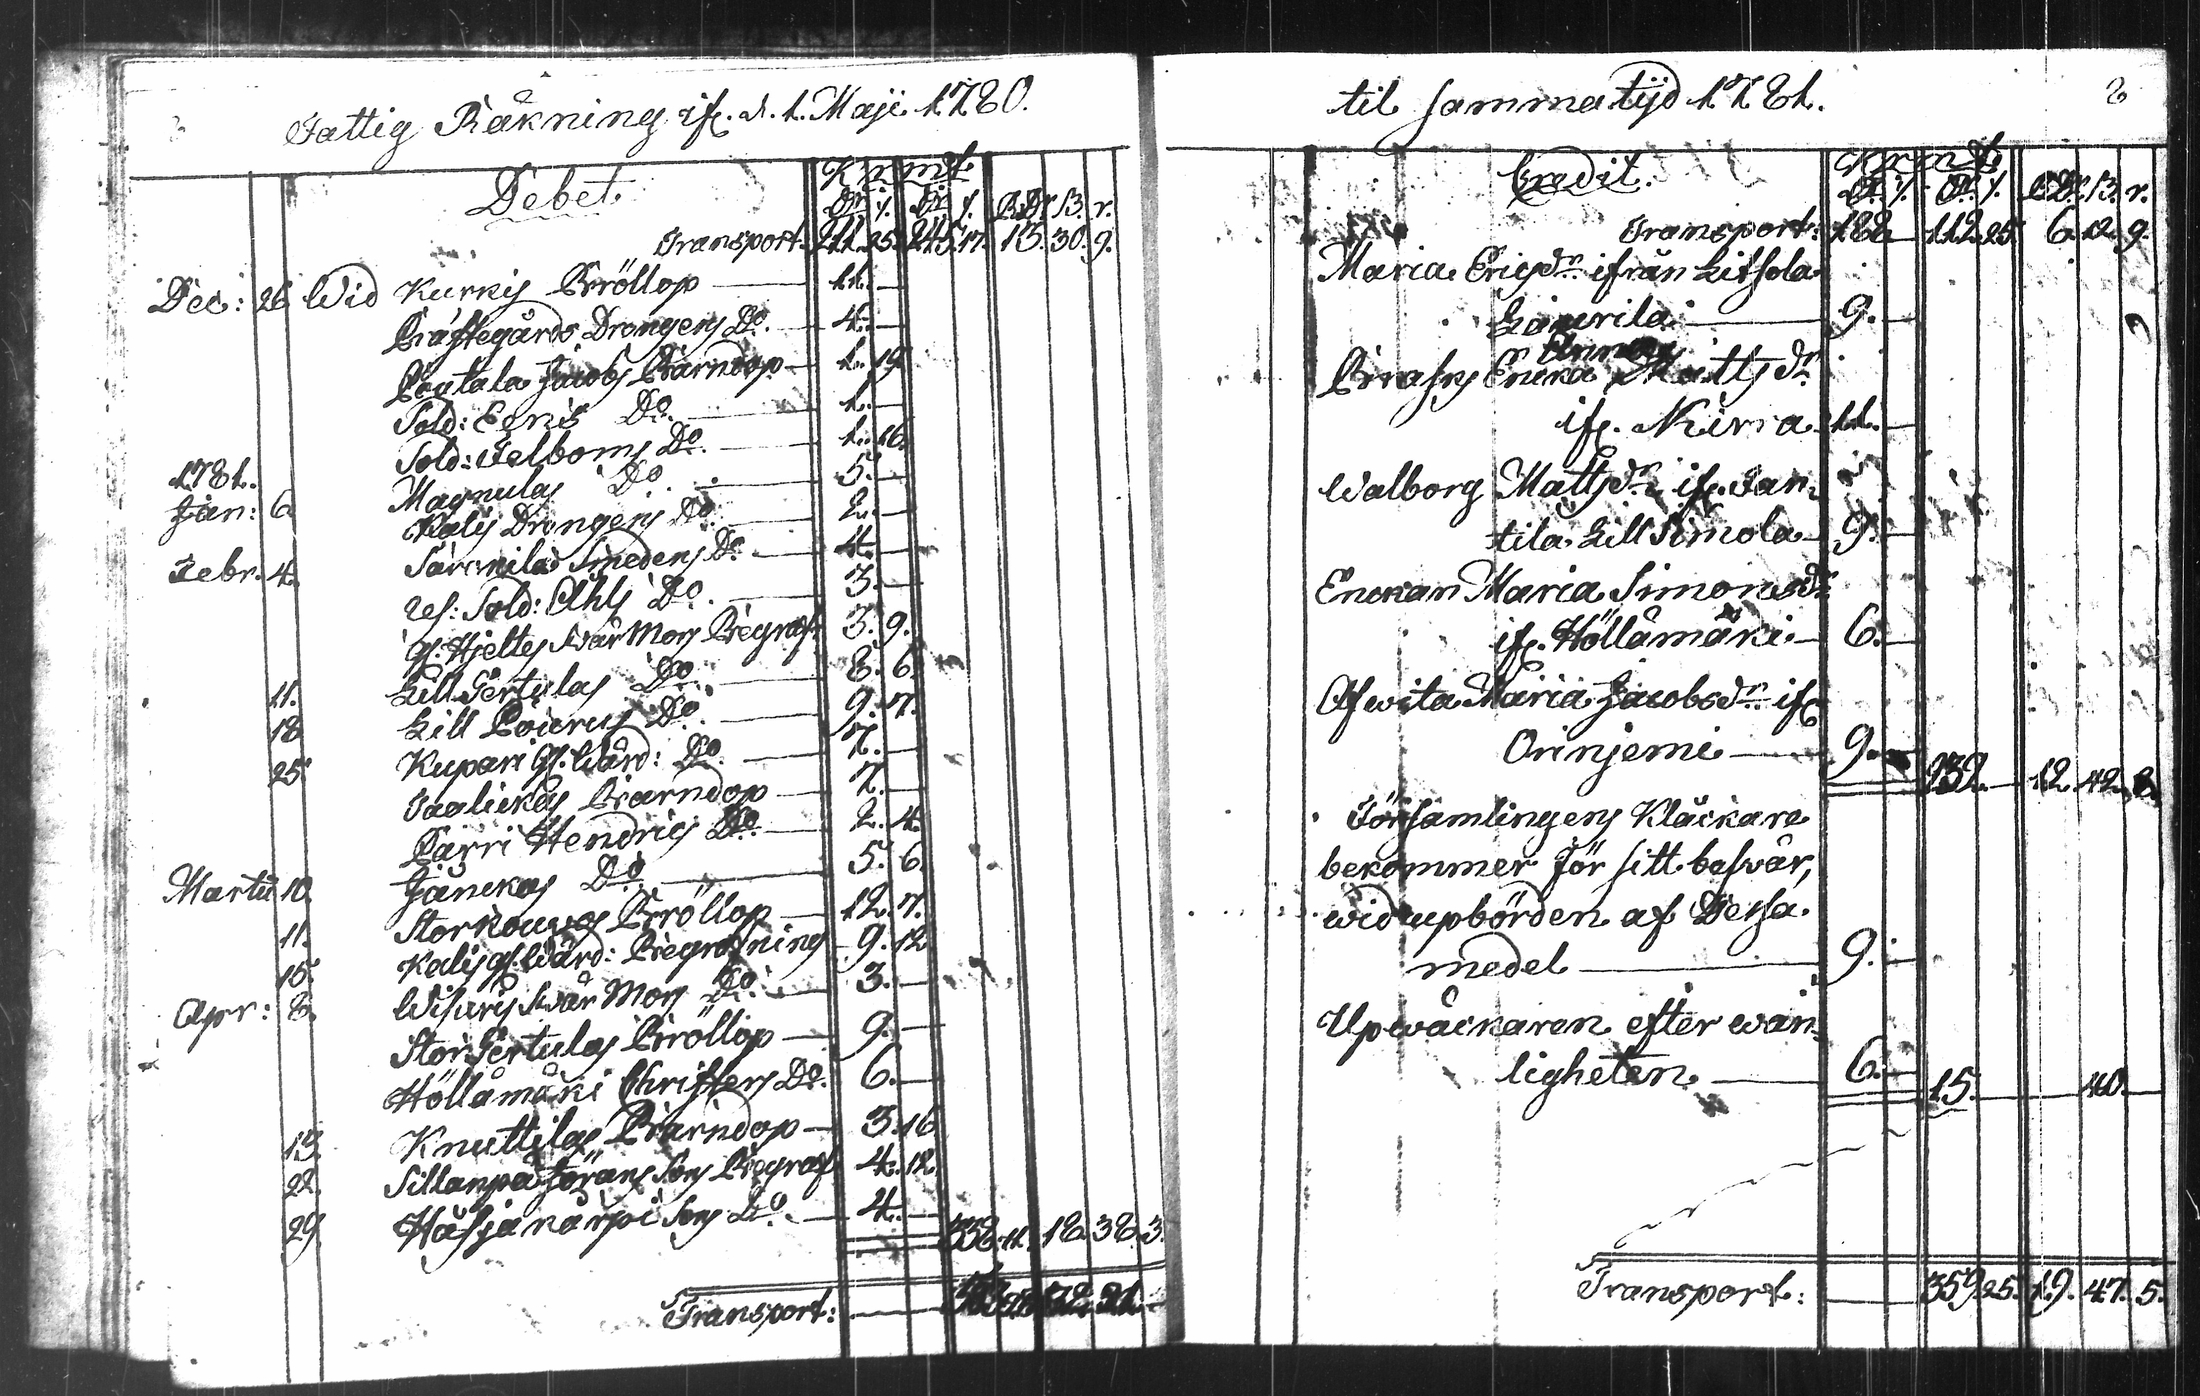 Fattig Räkning ifr. d. 1. Maji 1780.
Debet.
Krmt
Dr. /. Dr. /. R.Dr. 13. r.
Transport: 211. 25. 245. 17. 13. 30. 9.
Dec: 26 Wid Kurkis Bröllop — 11. —
Prästegårds Drengens Do. — 4. —
Pentala Jacobs Barndop — 1. 19.
Sold: Do. — 1. —
Sold: Do. — 1. 16.
1781.
Magnulas Do. — 5. —
Jan: 6. Kalis Drengens Do. — 2. —
Febr. 4. Smedens Do. — 4. —
Sold: Ahls Do. — 3. —
gl. Hjeltes Swär Mors Begraf: 3. 9.
11. Lill Pertulas Do. — 8. 6.
18. Lill Do. — 9. 7.
25. Kupari gl. Wärd: Do. — 7. —
Barndop — 7. —
Hendrics Do. — 2. 4.
Jänckas Do. — 5. 6.
Martii 10. Storkouvas Bröllop — 12. 7.
11. Kalis gl. Wärd: Begrafning — 9. 12.
15. Swär Mors Do. — 3. —
Apr: 8. Stor Pertulas Bröllop — 9. —
Höllämäki Christers Do. 6. —
15. Knuttilas Barndop — 3. 16.
22. Sillanpä Görans Sons Begraf 4. 12.
29. Häijänärpi Sons Do. — 4. —
338. 11. 18. 38. 3.
Transport: —
til samma tijd 1781.
Credit.
Krmt
Dr. /. Dr. /. R.Dr. 13. r.
Transport: 188. — 112. 25. 6. 12. 9.
Maria Ericsdr. ifrån
Laurila — 9. —
Enka Mattsdr.
ifr. Kirra. 11. —
Walborg Mattsdr. ifr. Jan-
tila Lill Simola — 9. —
Enckan Maria Simonsdr.
ifr. Höllämäki — 6. —
Afwita Maria Jacobsdr. ifr.
Orinjemi — 9. — 232. — 12. 42. 8.
Församlingens Kläckare
bekommer för sitt beswär,
wid upbörden af Dessa
medel — 9. —
Upwäckaren efter wän-
ligheten — 6. — 15. — 40. —
Transport: — 359. 25. 19. 47. 5.